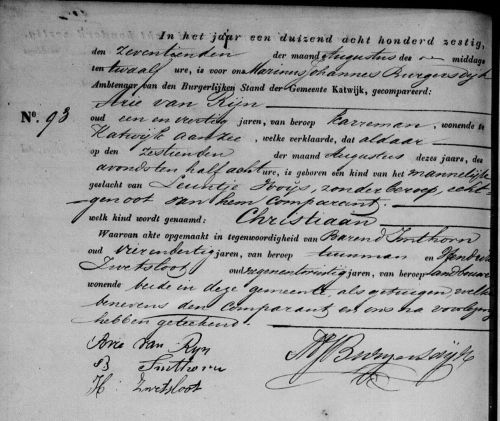 In het jaar een duizend acht honderd zestig,
den zeventienden der maand Augustus des middags
ten twaalf ure, is voor ons Marinus Johannes Burgersdijk
Ambtenaar van den Burgerlijken Stand der Gemeente Katwijk, gecompareerd:
Arie van Rijn
No. 93
oud een en veertig jaren, van beroep karreman, wonende te
Katwijk aan zee, welke verklaarde, dat aldaar
op den zestienden der maand Augustus dezes jaars, des
avonds ten half acht ure, is geboren een kind van het mannelijk
geslacht van Leuntje zonder beroep, echt-
genoot van hem Comparant.
welk kind wordt genaamd: Christiaan
Waarvan akte opgemaakt in tegenwoordigheid van Barend Imthorn
oud vierendertig jaren, van beroep tuinman en Hendrik
Zwetsloot oud jaren, van beroep landbouwer
wonende beide in deze gemeente, als getuigen, welke
benevens den Comparant en ons na voorlezing
hebben geteekend.
Arie van Ryn
B Imthorn
H. Zwetsloot
MJBurgersdijk